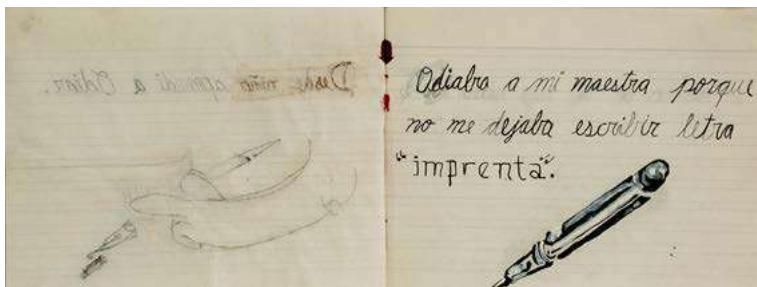 Desde niño aprendi a Odiar.
Odiaba a mi maestra porque
no me dejaba escribir letra
"imprenta".